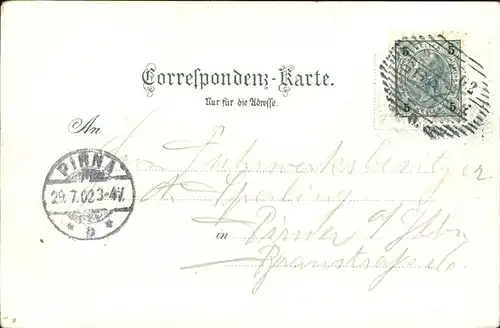 Correspondenz-Karte.
Nur für die Adresse.
5 5
5 5
An
PIRNA
29.7.02 3-4N.
* b *
Fuhrwerksbesitzer
A. Sperling
in Pirna a/Elbe